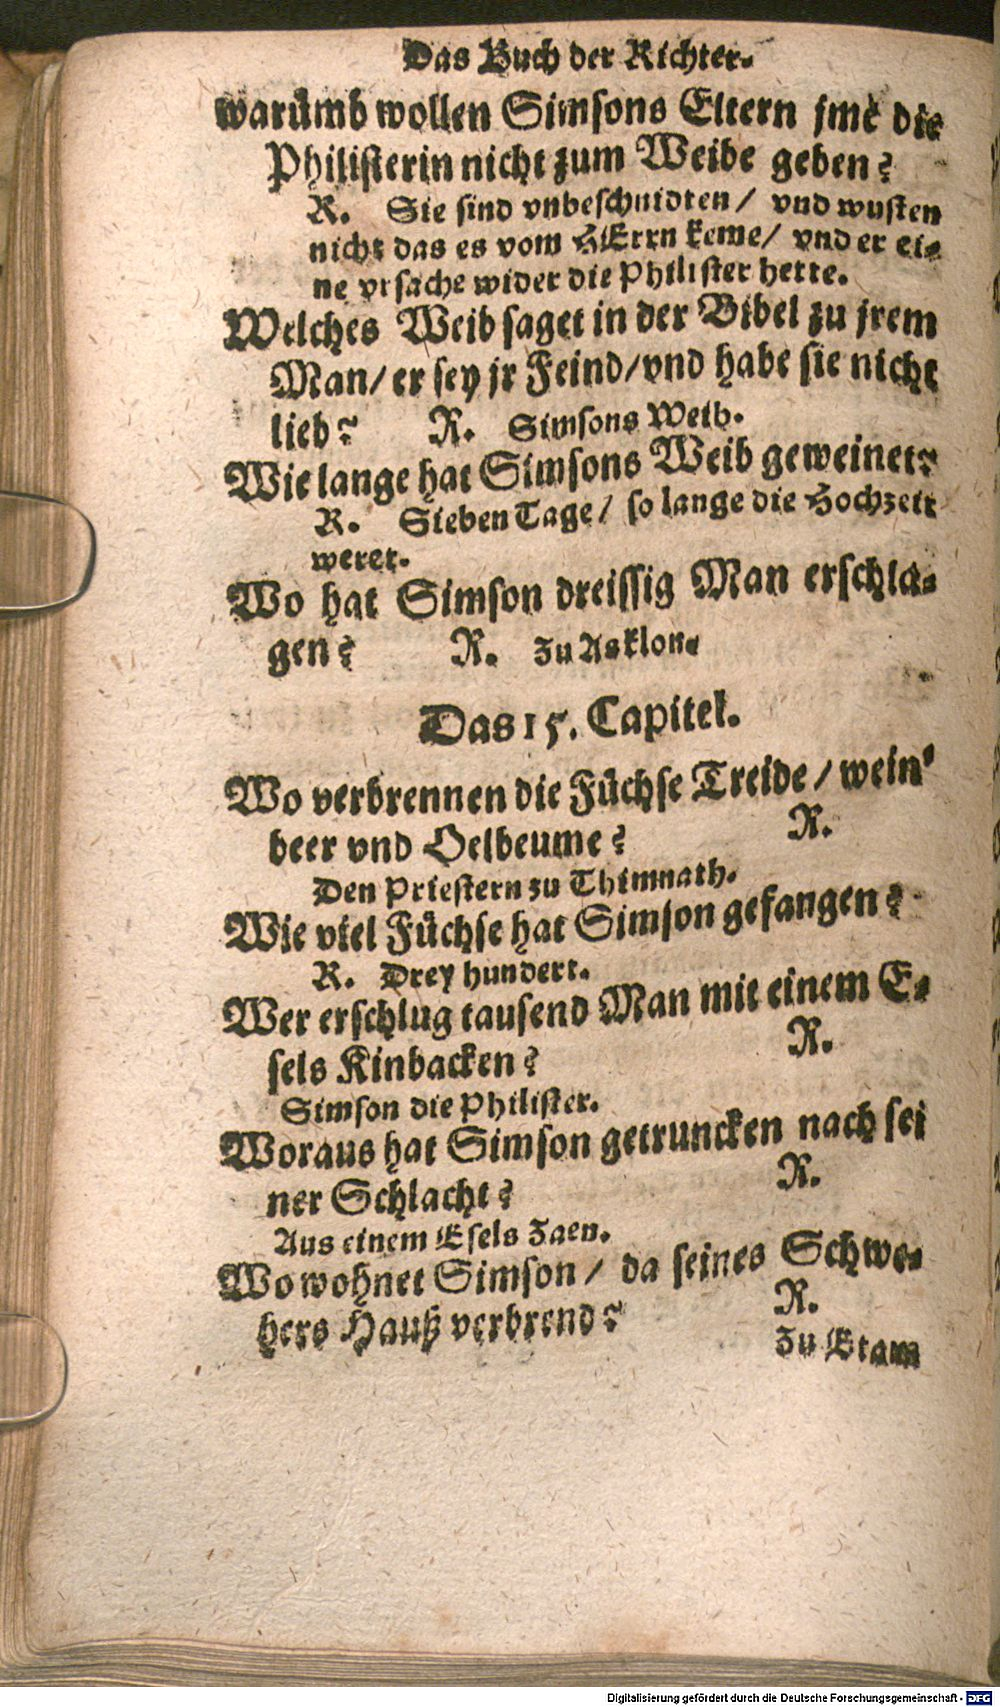 Das Buch der Richter.
warümb wollen Simsons Eltern jme die
Philisterin nicht zum Weibe geben?
R. Sie sind vnbeschnidten / vnd wusten
nicht das es vom HErrn keme / vnd er ei-
ne vrsache wider die Philister hette.
Welches Weib saget in der Bibel zu jrem
Man / er sey jr Feind / vnd habe sie nicht
lieb? R. Simsons Weib.
Wie lange hat Simsons Weib geweinet?
R. Sieben Tage / so lange die Hochzeit
weret.
Wo hat Simson dreissig Man erschla-
gen? R. Zu Asklon.
Das 15. Capitel.
Wo verbrennen die Füchse Treide / wein-
beer vnd Oelbeume? R.
Den Priestern zu Thimnath.
Wie viel Füchse hat Simson gefangen?
R. Drey hundert.
Wer erschlug tausend Man mit einem E-
sels Kinbacken? R.
Simson die Philister.
Woraus hat Simson getruncken nach sei
ner Schlacht? R.
Aus einem Esels Zaen.
Wo wohnet Simson / da seines Schwe-
hers Hauß verbrend? R.
Zu Etam
Digitalisierung gefördert durch die Deutsche Forschungsgemeinschaft - DFG